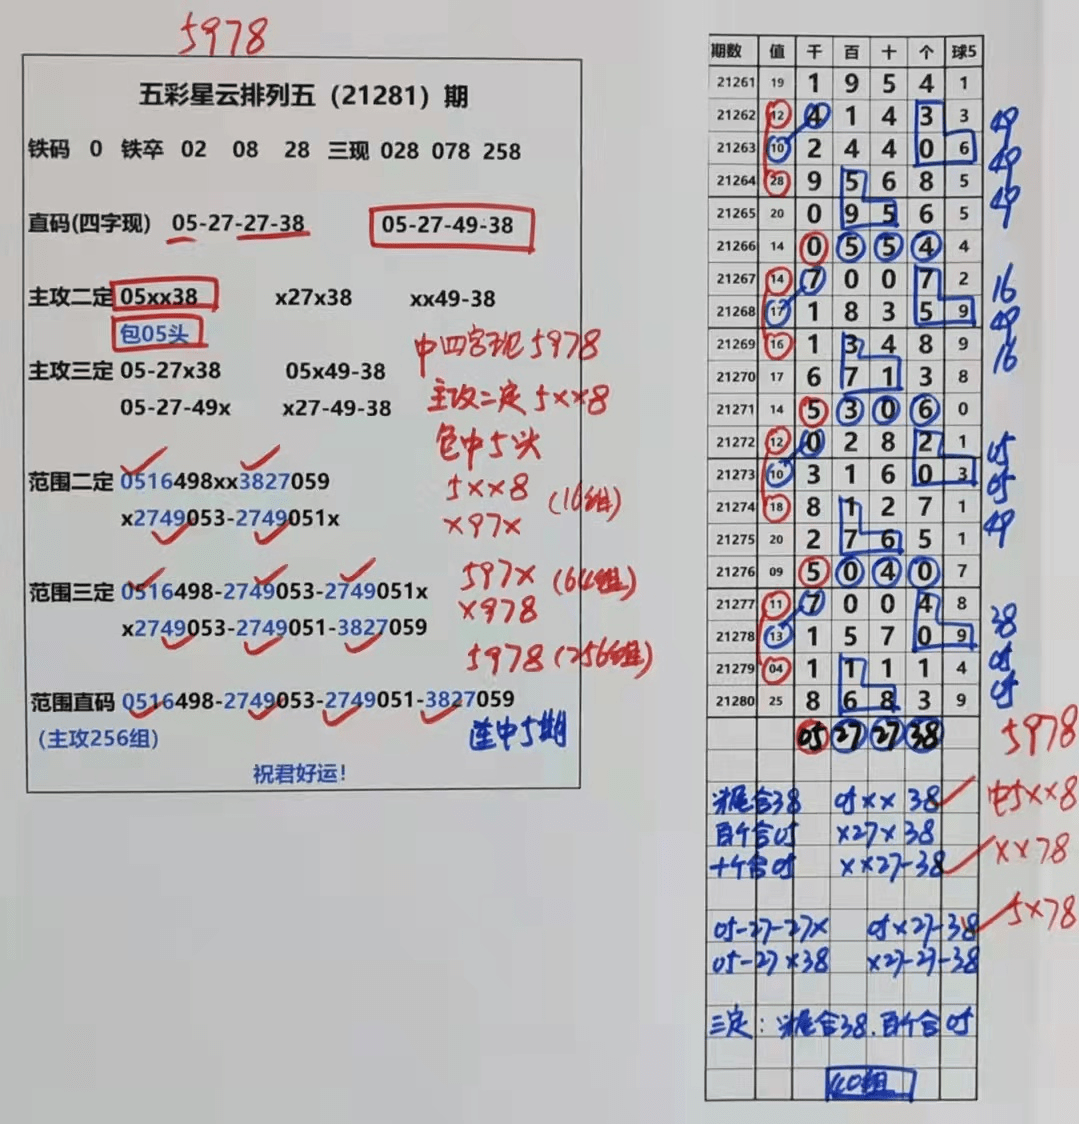 5978
五彩星云排列五（21281）期
铁码 0 铁卒 02 08 28 三现 028 078 258
直码(四字现) 05-27-27-38 05-27-49-38
主攻二定 05xx38 x27x38 xx49-38
包05头
中四字现5978
主攻三定 05-27x38 05x49-38
主攻二定5xx8
05-27-49x x27-49-38
包中5头
范围二定 0516498xx3827059
5xx8 (16组)
x2749053-2749051x
x97x
范围三定 0516498-2749053-2749051x
597x (64组)
x2749053-2749051-3827059
x978
5978 (256组)
范围直码 0516498-2749053-2749051-3827059
(主攻256组)
连中5期
祝君好运！
期数 值 千 百 十 个 球5
21261 19 1 9 5 4 1
21262 12 4 1 4 3 3 49
21263 10 2 4 4 0 6 49
21264 28 9 5 6 8 5 49
21265 20 0 9 5 6 5
21266 14 0 5 5 4 4
21267 14 7 0 0 7 2 16
21268 17 1 8 3 5 9 49
21269 16 1 3 4 8 9 16
21270 17 6 7 1 3 8
21271 14 5 3 0 6 0
21272 12 0 2 8 2 1 05
21273 10 3 1 6 0 3 05
21274 18 8 1 2 7 1 49
21275 20 2 7 6 5 1
21276 09 5 0 4 0 7
21277 11 7 0 0 4 8 38
21278 13 1 5 7 0 9 05
21279 04 1 1 1 1 4 05
21280 25 8 6 8 3 9
05 27 27 38 5978
尾合38 05xx38 中5xx8
百个合05 x27x38
十个合05 xx27-38 xx78
05-27-27x 05x27-38 5x78
05-27x38 x27-27-38
三定： 尾合38.百个合05
40组